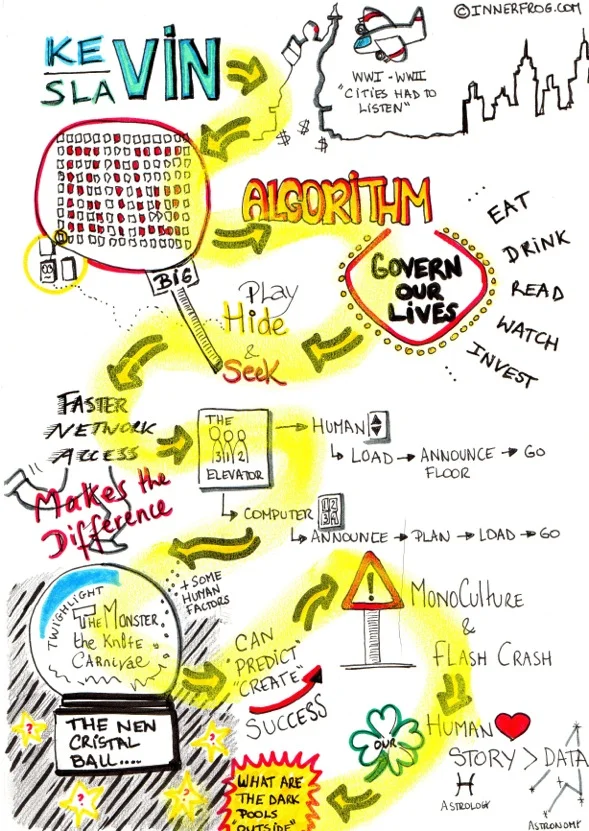 ©INNERFROG.COM
KEVIN
SLAVIN
WWI - WWII
"CITIES HAD TO
LISTEN"
$ $ $
ALGORITHM
EAT
DRINK
READ
WATCH
INVEST
GOVERN
OUR
LIVES
BIG
PLAY
Hide
&
Seek
FASTER
NETWORK
ACCESS
Makes the
Difference
THE
3 1 2
ELEVATOR
HUMAN
LOAD → ANNOUNCE → GO
FLOOR
COMPUTER
1 2
3 A
ANNOUNCE → PLAN → LOAD → GO
+ SOME
HUMAN
FACTORS
TWIGHLIGHT
THE MONSTER
the Knife
CARNIVAL
THE NEW
CRISTAL
BALL....
? ? ? ?
CAN
"PREDICT"
"CREATE"
SUCCESS
!
MONOCULTURE
&
FLASH CRASH
OUR
HUMAN
STORY > DATA
ASTROLOGY
ASTRONOMY
WHAT ARE
THE DARK
POOLS
"OUTSIDE"